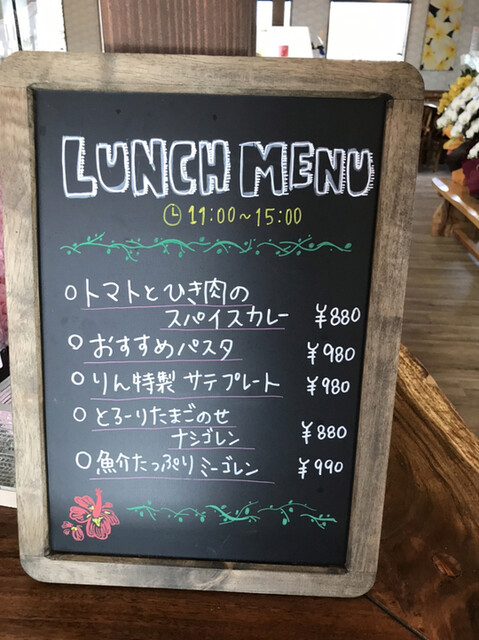 LUNCH MENU
11:00～15:00
○トマトとひき肉の
スパイスカレー ¥880
○おすすめパスタ ¥980
○りん特製 サテプレート ¥980
○とろーりたまごのせ
ナシゴレン ¥880
○魚介たっぷりミーゴレン ¥990